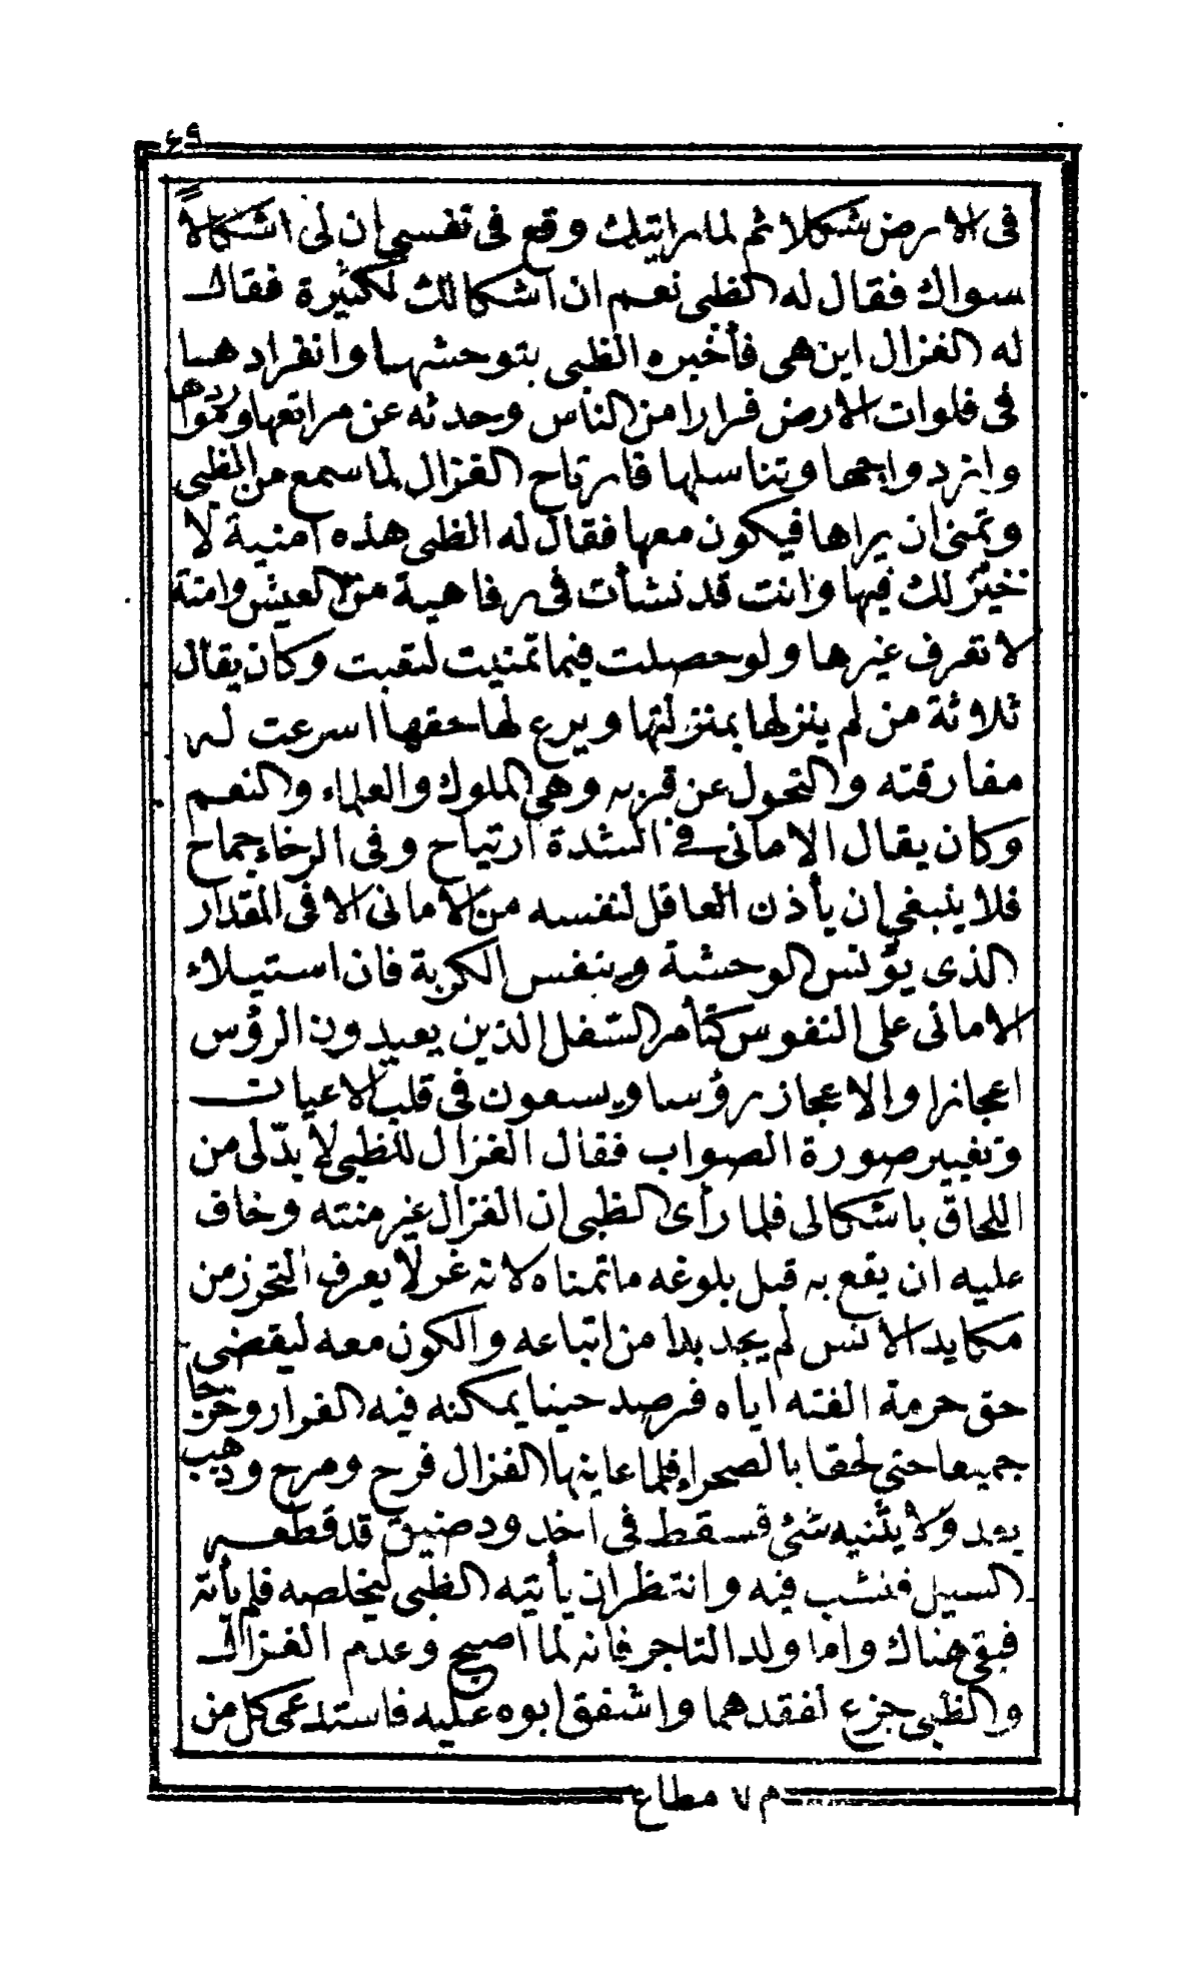 ٤٩
في الارض شكلا ثم لما رايتك وقع في نفسي ان لي اشكالاً
سواك فقال له الظبي نعم ان اشكالك لكثيرة فقال
له الغزال اين هي فأخبره الظبي بتوحشها وانفرادها
في فلوات الارض فرارا من الناس وحدثه عن مراتعها ومواردها
وازدواجها وتناسلها فارتاح الغزال لما سمع من الظبي
وتمنى ان يراها فيكون معها فقال له الظبي هذه امنية لا
خير لك فيها وانت قد نشأت في رفاهية من العيش وامنة
لا تعرف غيرها ولو حصلت فيما تمنيت لتعبت وكان يقال
ثلاثة من لم ينزلها بمنزلتها ويرع لها حقها اسرعت له
مفارقته والتحول عن قربه وهي الملوك والعلماء والنعم
وكان يقال الاماني في الشدة ارتياح وفي الرخاء جماح
فلا ينبغي ان يأذن العاقل لنفسه من الاماني الا في المقدار
الذي يؤنس الوحشة وينفس الكربة فان استيلاء
الاماني على النفوس كتأمر السفل الذين يعيدون الرؤس
اعجازا والاعجاز رؤسا ويسعون في قلب الاعيان
وتغيير صورة الصواب فقال الغزال للظبي لا بدّ لي من
اللحاق باشكالي فلما رأى الظبي ان الغزال غير منته وخاف
عليه ان يقع به قبل بلوغه ما تمناه لانه غر لا يعرف التحرز من
مكايد الانس لم يجد بدا من اتباعه والكون معه ليقضي
حق حرمة الفته اياه فرصد حينا يمكنه فيه الفرار وخرجا
جميعا حتى لحقا بالصحراء فلما عاينها الغزال فرح ومرح وذهب
يعد ولا يثنيه شئ فسقط في اخدود ضيق قد قطعه
السيل فنشب فيه وانتظر ان يأتيه الظبي ليخلصه فلم يأته
فبقي هناك واما ولد التاجر فانه لما اصبح وعدم الغزال
والظبي جزع لفقدهما واشفق ابوه عليه فاستدعى كل من
م ٧ مطاع